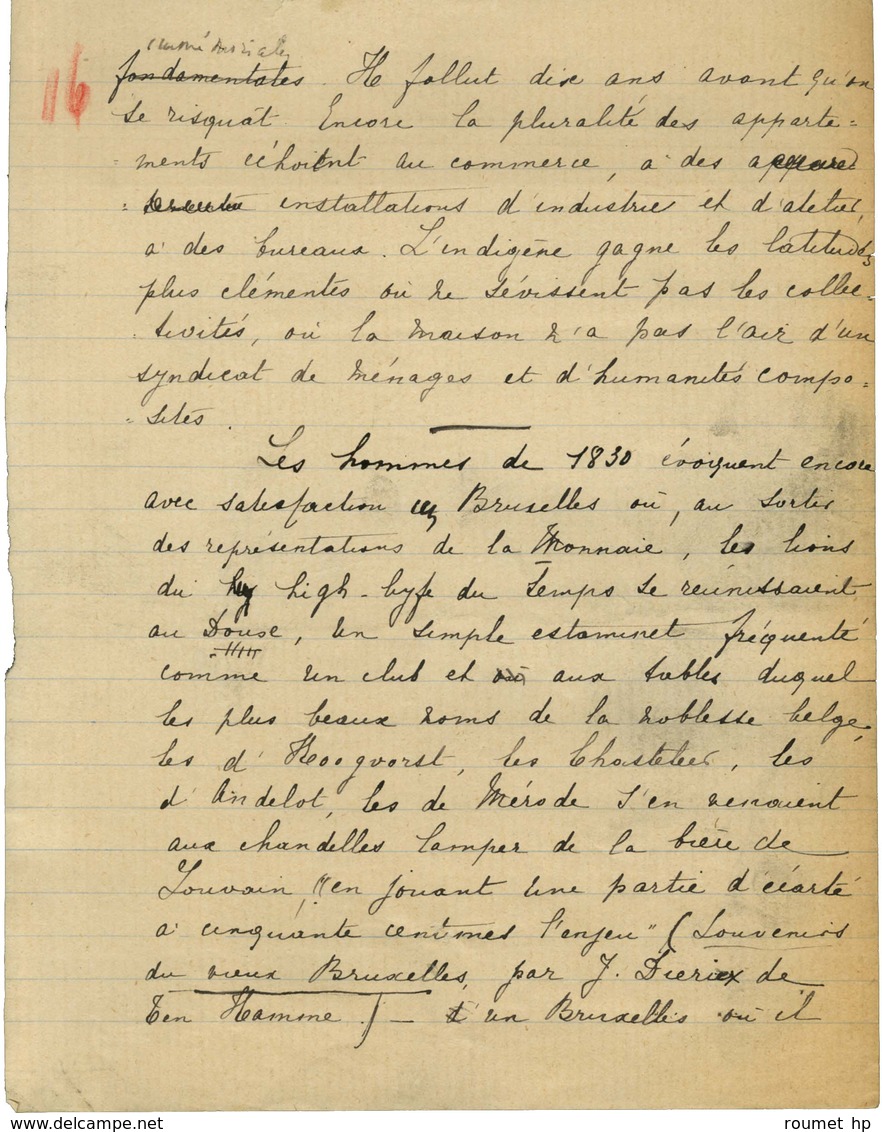 16
immémoriales
fondamentales. Il fallut dix ans avant qu'on
se risquât Encore la pluralité des apparte=
ments échoient au commerce, à des
= installations d'industrie et d'atelier,
à des bureaux. L'indigène gagne les latitudes
plus clémentes où ne sévissent pas les collec-
tivités, où la maison n'a pas l'air d'un
syndicat de ménages et d'humanités compo=
= sites.
Les hommes de 1830 évoquent encore
avec satisfaction un Bruxelles où, au sortir
des représentations de la Monnaie, les lions
du high-lyfe du Temps se réunissaient
au Doux, un simple estaminet fréquenté
comme un club et où aux tables duquel
les plus beaux noms de la noblesse belge,
les d'Hoogvorst, les Chasteler, les
d'Andelot, les de Mérode s'en venaient
aux chandelles lamper de la bière de
Louvain, "en jouant une partie d'écarté
à cinquante centimes l'enjeu" (Souvenirs
du vieux Bruxelles, par J. Dierix de
Ten Hamme) — d'un Bruxelles où il
roumet hp